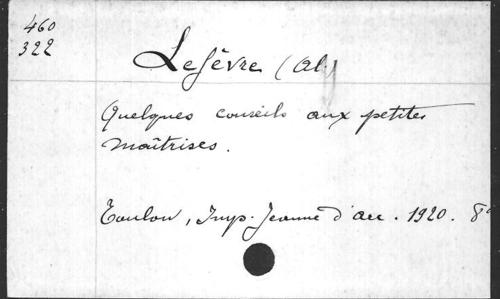 460
322
Lefèvre (Al.)
Quelques conseils aux petites
maîtrises.
Toulon, Imp. Jeanne d'arc. 1920. 8°